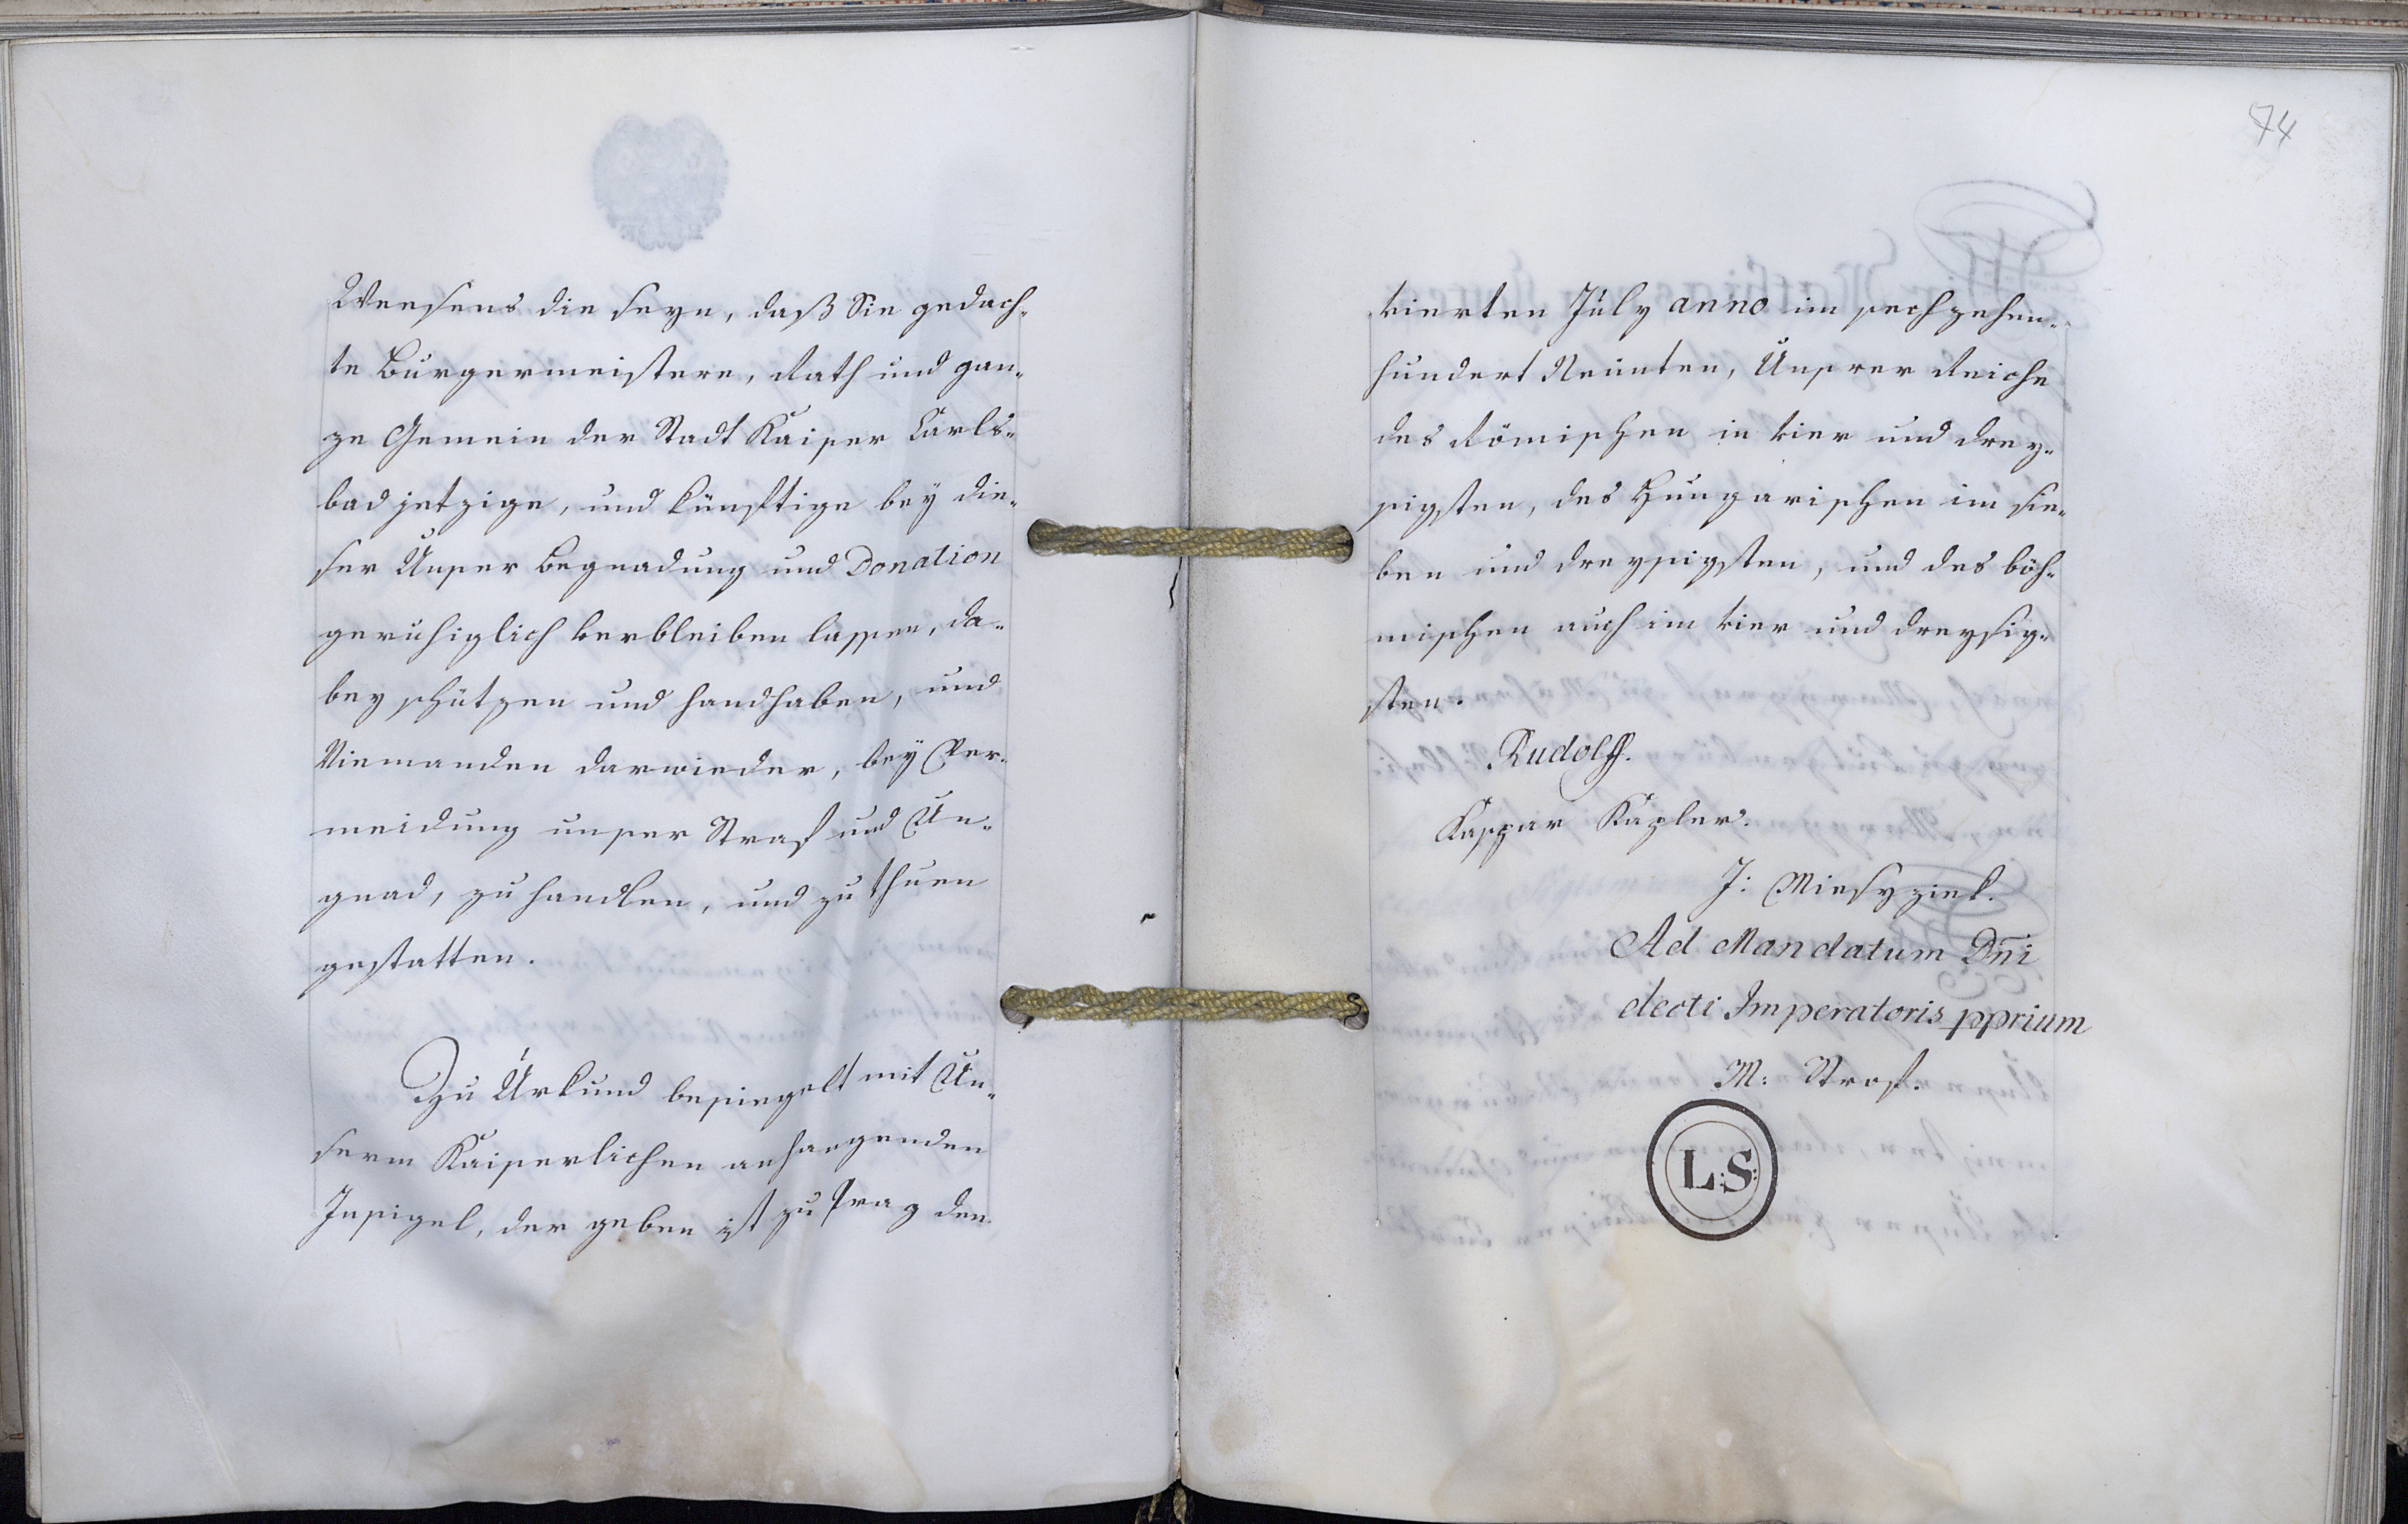 Weesens die seyn, daß Sie gedach-
te Burgermeistere, Rath und gan-
ze Gemein der Stadt Kaiser Carls-
bad jetzige, und künftige bey die-
ser Unser Begnadung und Donation
geruhiglich verbleiben lassen, da-
bey schützen und handhaben, und
Niemanden darwieder, bey Ver-
meidung unser Straf und Un-
gnad, zu handlen, und zu thuen
gestatten.
Zu Urkund besiegelt mit Un-
serm Kaiserlichen anhangenden
Insigel, der geben ist zu Prag den
74
vierten July anno im sechzehen-
hundert Neünten, Unserer Reiche
des Römischen in vier und drey-
sigsten, des Hungarischen im sie-
ben und dreysigsten, und des böh-
mischen auch im vier und dreysig-
sten.
Rudolff.
Kaspar Kapler.
J:
Ad Mandatum Dn̄i
electi Imperatoris pprium
M:
L:S: